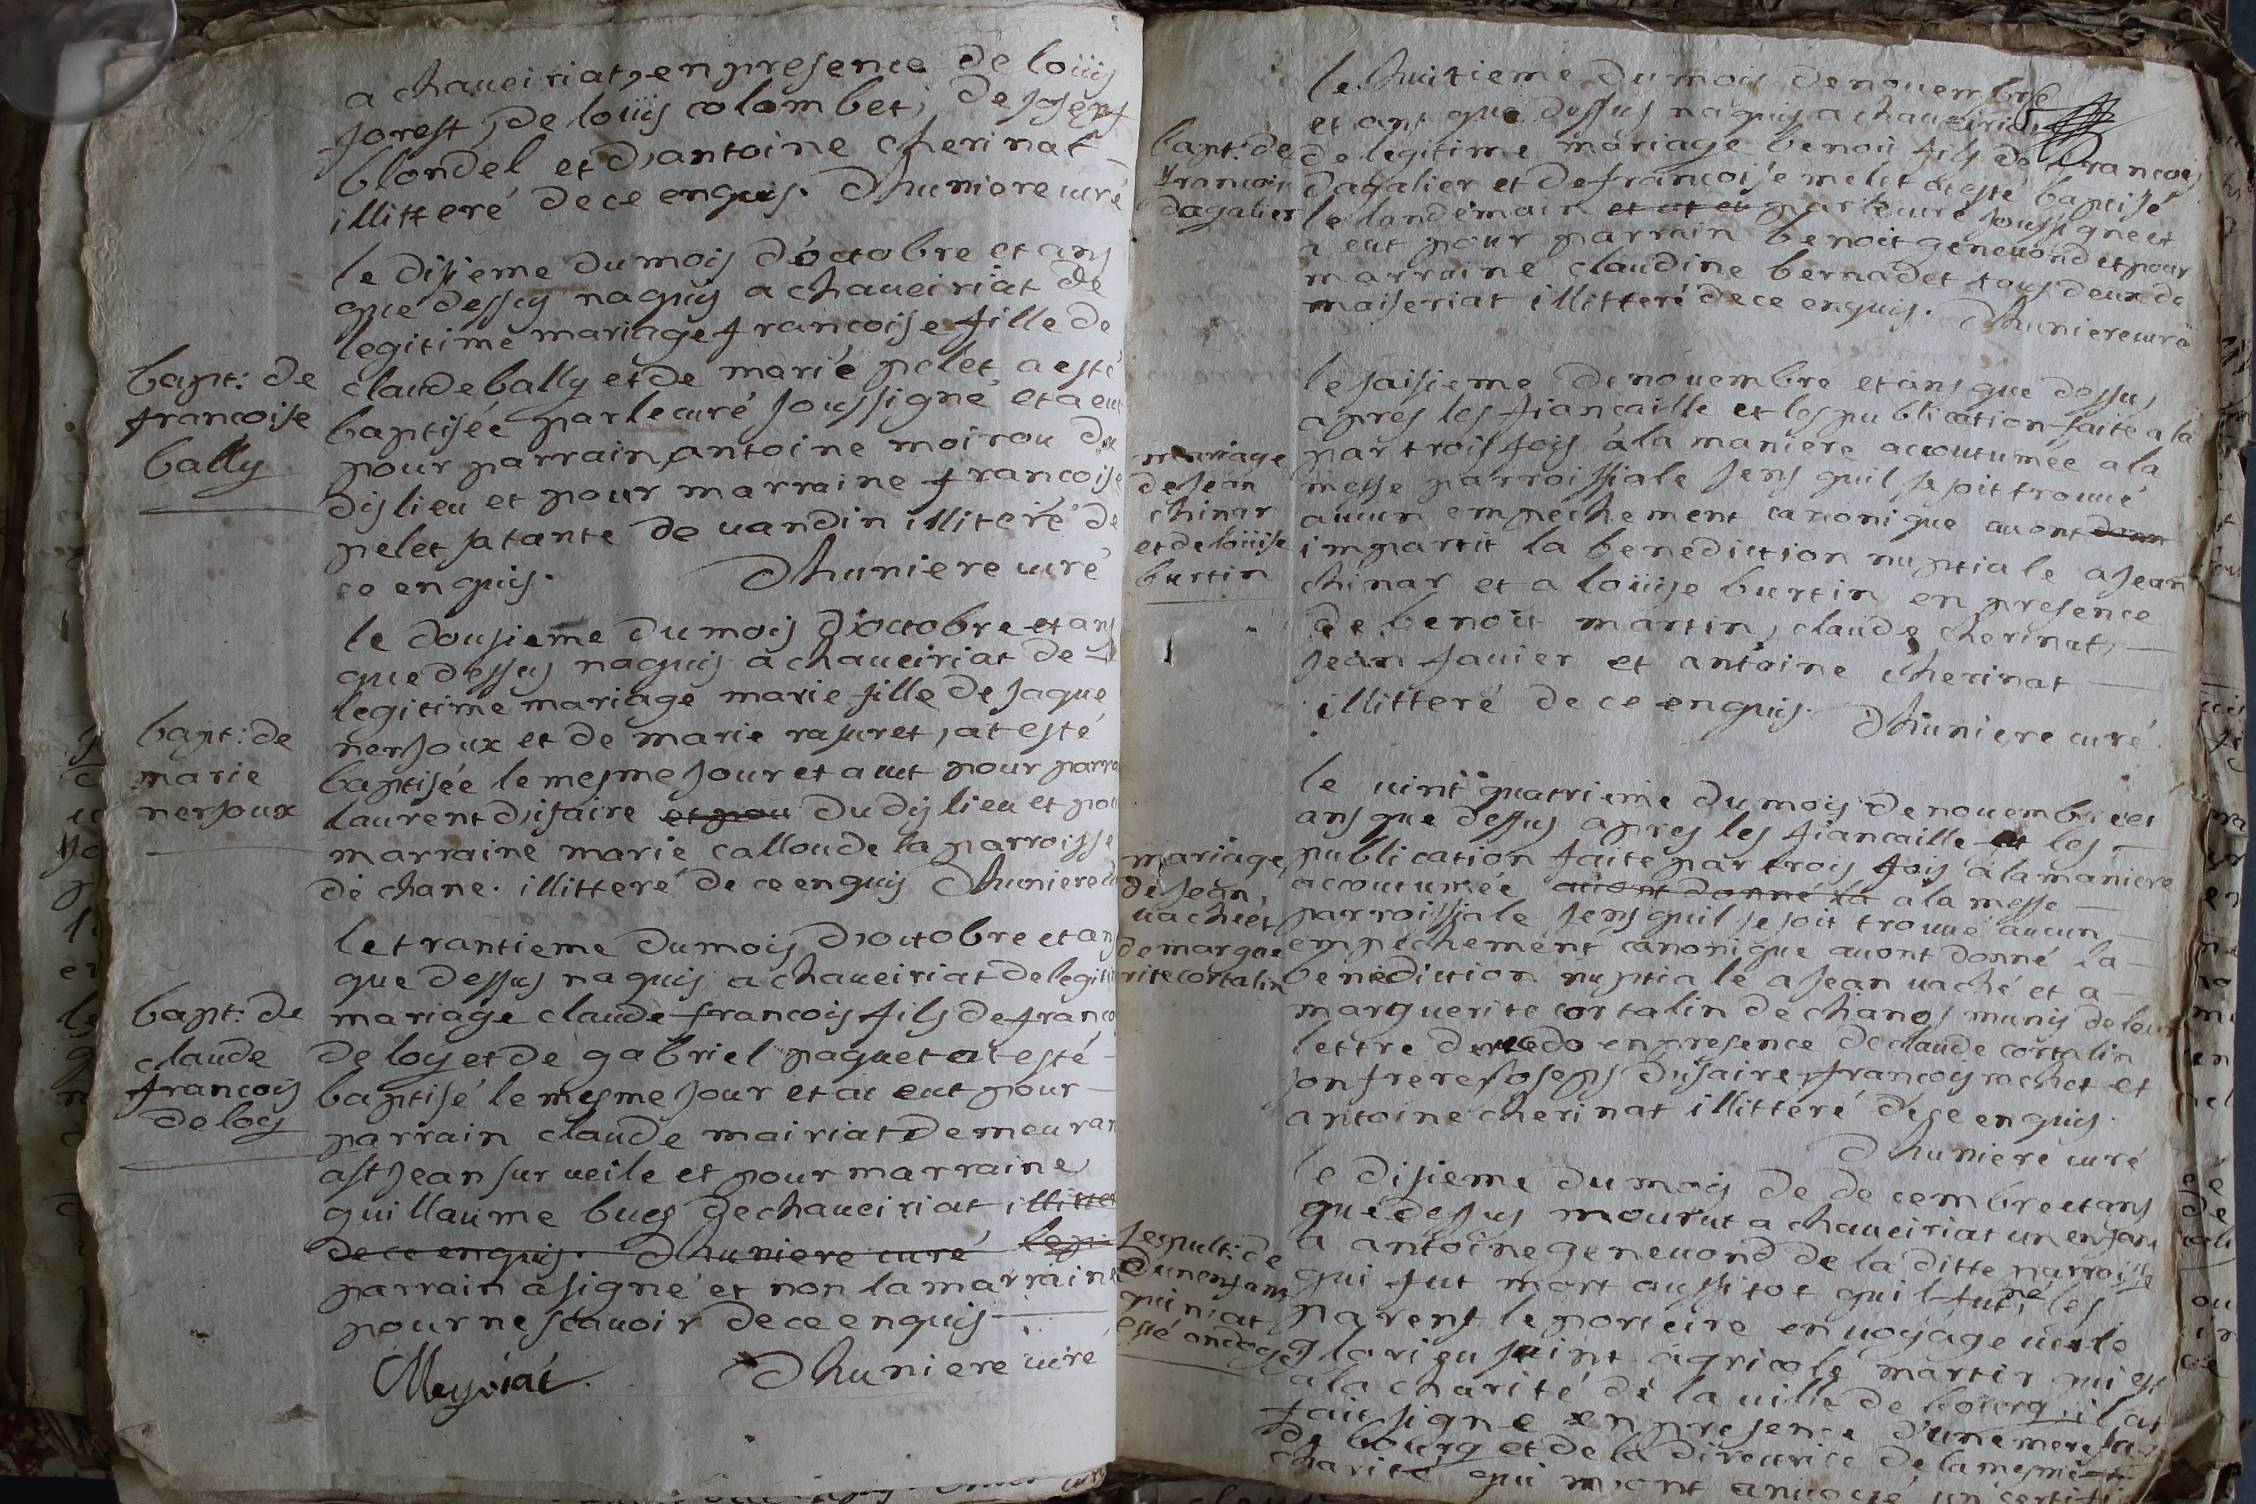 a chaveiriat, en presence de loüis
forest, de loüis colombet, de joseph
blondel et d,antoine cherinat
illitteré de ce enquis. Dhuniere curé
le disieme du mois d'octobre et ans
que dessus naquis a chaveiriat de
legitime mariage francoise fille de
bapt: de
francoise
bally
claude bally et de marié pelet a esté
baptisée par le curé soussigné et a eut
pour parrain antoine moirou du
dis lieu et pour marraine francoise
pelet sa tante de vandin illiteré de
ce enquis. Dhuniere curé
le dousieme du mois d'octobre et ans
que dessus naquis a chaveiriat de
legitime mariage marie fille de jaque
bapt: de
marie
nerjoux
nerjoux et de marie rasuret, at esté
baptisée le mesme jour et a eut pour parra
laurent d,isaire et pou du dis lieu et pou
marraine marie callou de la parroisse
de chane. illitteré de ce enquis Dhuniere cu
le trantieme du mois d'octobre et ans
que dessus naquis a chaveiriat de legiti
bapt: de
claude
francois
de loy
mariage claude francois fils de franco
de loy et de gabriel paquet at esté
baptisé le mesme jour et at eut pour
parrain claude mairiat demeuran
a st jean sur veile et pour marraine
guillaume bues de chaveiriat illitte
de ce enquis. Dhuniere curé
parrain a signé et non la marraine
pour ne scavoir de ce enquis
Meyriat. Dhuniere curé
le huitieme du mois de novembre
et ans que dessus naquis a chaveiriat
bapt: de
francois
dagalier
de legitime mariage benoit fils de francois
dagalier et de francoise melet at esté baptisé
le landemain et at eu par le curé soussigné et
a eut pour parrain benoit genevond et pour
marraine claudine bernadet tous deux de
maiseriat illitteré de ce enquis. Dhuniere curé
le saisieme de novembre et ans que dessus
apres les fiancaille et les publication faite a la
mariage
de jean
chinar
et de loüise
burtin
par trois fois a la maniere accoutumée a la
messe parroissiale sens quil se soit trouvé
aucun empechement canonique avont donn
impartit la benediction nuptiale a jean
chinar et a loüise burtin en presence
de benoit martin, claude cherinat,
jean favier et antoine cherinat
illitteré de ce enquis. Dhuniere curé
le vint quatrieme du mois de novembre et
ans que dessus apres les fiancaille et les
mariage
de jean
vaché et
de margue
rite cortalin
publication faite par trois fois a la maniere
accoutumée avont donné la a la messe
parroissiale sens quil se soit trouvé aucun
empechement canonique avont donné la
benediction nuptiale a jean vaché et a
marguerite cortalin de chanos munis de leur
lettre de recedo en presence de claude cortalin
son frere joseph disaire, francois rachet et
antoine cherinat illitteré de ce enquis.
Dhuniere curé
le disieme du mois de decembre et ans
que dessus mourut a chaveiriat un enfant
sepult: de
d'un enfant
qui n'at
esté ondoyé
a antoine genevond de la ditte parroisse
qui fut mort aussitot qui l fut né les
parent le porteire en voyage vers le
glorieu saint agricole martir qui est
a la charité de la ville de bourg il at
fait signe en presence d'une mere sage
de bourg et de la directrice de la mesme
charité qui m'ont anvoyé un certifi